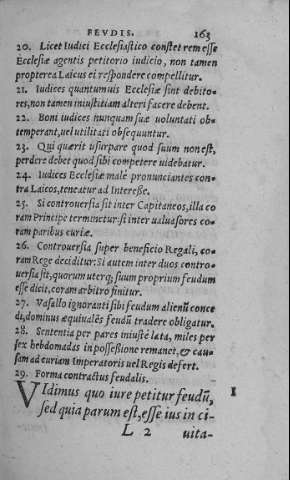 FEVDIS. 163
20. Licet Iudici Ecclesiastico constet rem esse
Ecclesiæ agentis petitorio iudicio, non tamen
propterea Laicus ei respondere compellitur.
21. Iudices quantumuis Ecclesiæ sint debito-
res, non tamen iniustitiam alteri facere debent.
22. Boni iudices nunquam suæ uoluntati ob-
temperant, uel utilitati obsequuntur.
23. Qui quærit usurpare quod suum non est,
perdere debet quod sibi competere uidebatur.
24. Iudices Ecclesiæ malè pronunciantes con-
tra Laicos, teneatur ad Interesse.
25. Si controuersia sit inter Capitaneos, illa co
ram Principe terminetur: si inter ualuasores co-
ram paribus curiæ.
26. Controuersia super beneficio Regali, co-
ram Rege deciditur: Si autem inter duos contro-
uersia sit, quorum uterq; suum proprium feudum
esse dicit, coram arbitro finitur.
27. Vasallo ignoranti sibi feudum alienũ conce
di, dominus æquiualẽs feudũ tradere obligatur.
28. Sententia per pares iniustè lata, miles per
sex hebdomadas in possessione remanet, & cau-
sam ad curiam Imperatoris uel Regis defert.
29. Forma contractus feudalis.
VIdimus quo iure petitur feudũ, 1
sed quia parum est, esse ius in ci-
L 2 uita-